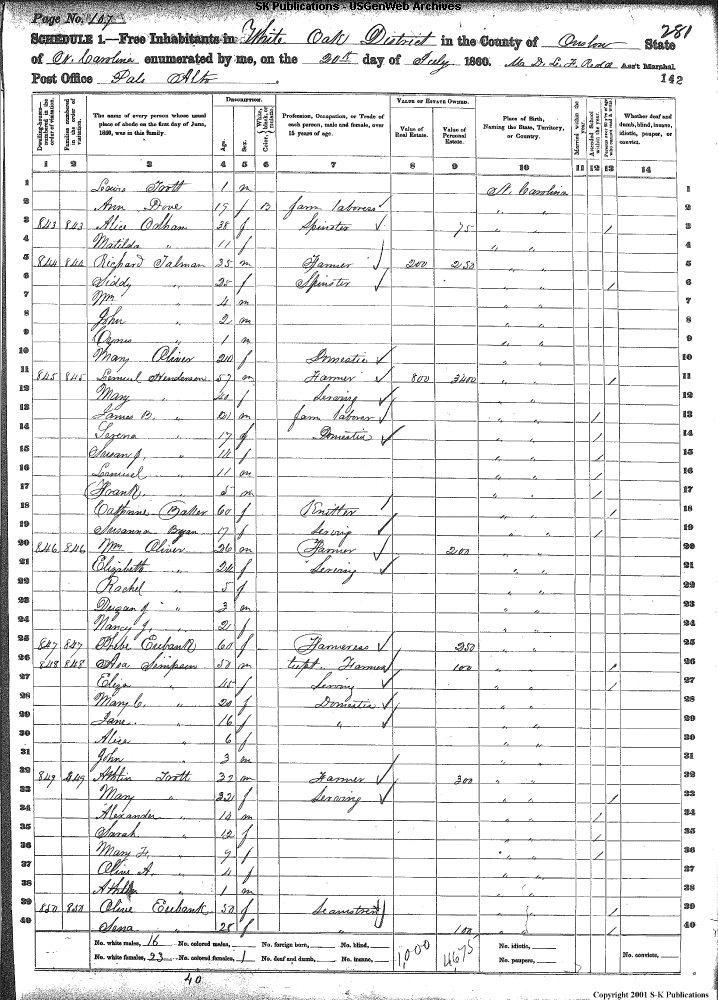 SK Publications - USGenWeb Archives
Page No. 107
281
SCHEDULE 1.—Free Inhabitants in White Oak District in the County of Onslow State
of N. Carolina enumerated by me, on the 20th day of July 1860. Ass't Marshal.
Post Office Palo Alto 142
Dwelling-houses—numbered in the order of visitation. Families numbered in the order of visitation. The name of every person whose usual place of abode on the first day of June, 1860, was in this family. DESCRIPTION. Age. Sex. Color, White, black, or mulatto. Profession, Occupation, or Trade of each person, male and female, over 15 years of age. VALUE OF ESTATE OWNED. Value of Real Estate. Value of Personal Estate. Place of Birth, Naming the State, Territory, or Country. Married within the year. Attended School within the year. Whether deaf and dumb, blind, insane, idiotic, pauper, or convict.
1 2 3 4 5 6 7 8 9 10 11 12 13 14
1 Lewis 1 m N. Carolina 1
2 Ann 19 f B farm laborer " " 2
3 843 843 Alice Oldham 38 f Spinster 75 " " / 3
4 Matilda " 11 f " " 4
5 844 844 Richard Talman 35 m Farmer 200 250 " " 5
6 Siddy " 25 f Spinster " " / 6
7 Wm " 4 m " " 7
8 John " 2 m " " 8
9 " 1 m " " 9
10 Mary Oliver f Domestic " " 10
11 845 845 Lemuel Henderson 57 m Farmer 800 3400 " " / 11
12 Mary " 40 f Serving " " 12
13 James B. " m farm laborer " " / 13
14 " 17 f Domestic " " / 14
15 Susan J. " 14 f " " / 15
16 Lemuel " 11 m " " / 16
17 Frank " 5 m " " / 17
18 Catherine Baker 60 f Knitter " " / 18
19 Susanna Bryan 17 f Serving " " / 19
20 846 846 Wm Oliver 26 m Farmer 200 " " 20
21 Elizabeth " f Serving " " 21
22 Rachel " 5 f " " 22
23 " 3 m " " 23
24 Nancy J. " 2 f " " 24
25 847 847 Phebe Eubank 60 f Farmeress 250 " " 25
26 848 848 Asa Simpson 50 m Farmer 100 " " / 26
27 Eliza " 45 f Serving " " / 27
28 Mary C. " 20 f Domestic " " 28
29 Jane " 16 f " " " 29
30 Alice " 6 f " " 30
31 John " 3 m " " 31
32 849 849 37 m Farmer 300 " " 32
33 Mary " f Serving " " / 33
34 Alexander " 14 m " " / 34
35 Sarah " 12 f " " / 35
36 Mary F. " 9 f " " / 36
37 Olive A. " 4 f " " 37
38 " 1 m " " 28
39 850 850 Olive Eubank 50 f Seamstress " " / 39
40 " 28 f " 100 " " / 40
No. white males, 16 No. colored males, No. foreign born, No. blind, 1,000 4675 No. idiotic, No. convicts,
No. white females, 23 No. colored females, 1 No. deaf and dumb, No. insane, No. paupers,
40
Copyright 2001 S-K Publications